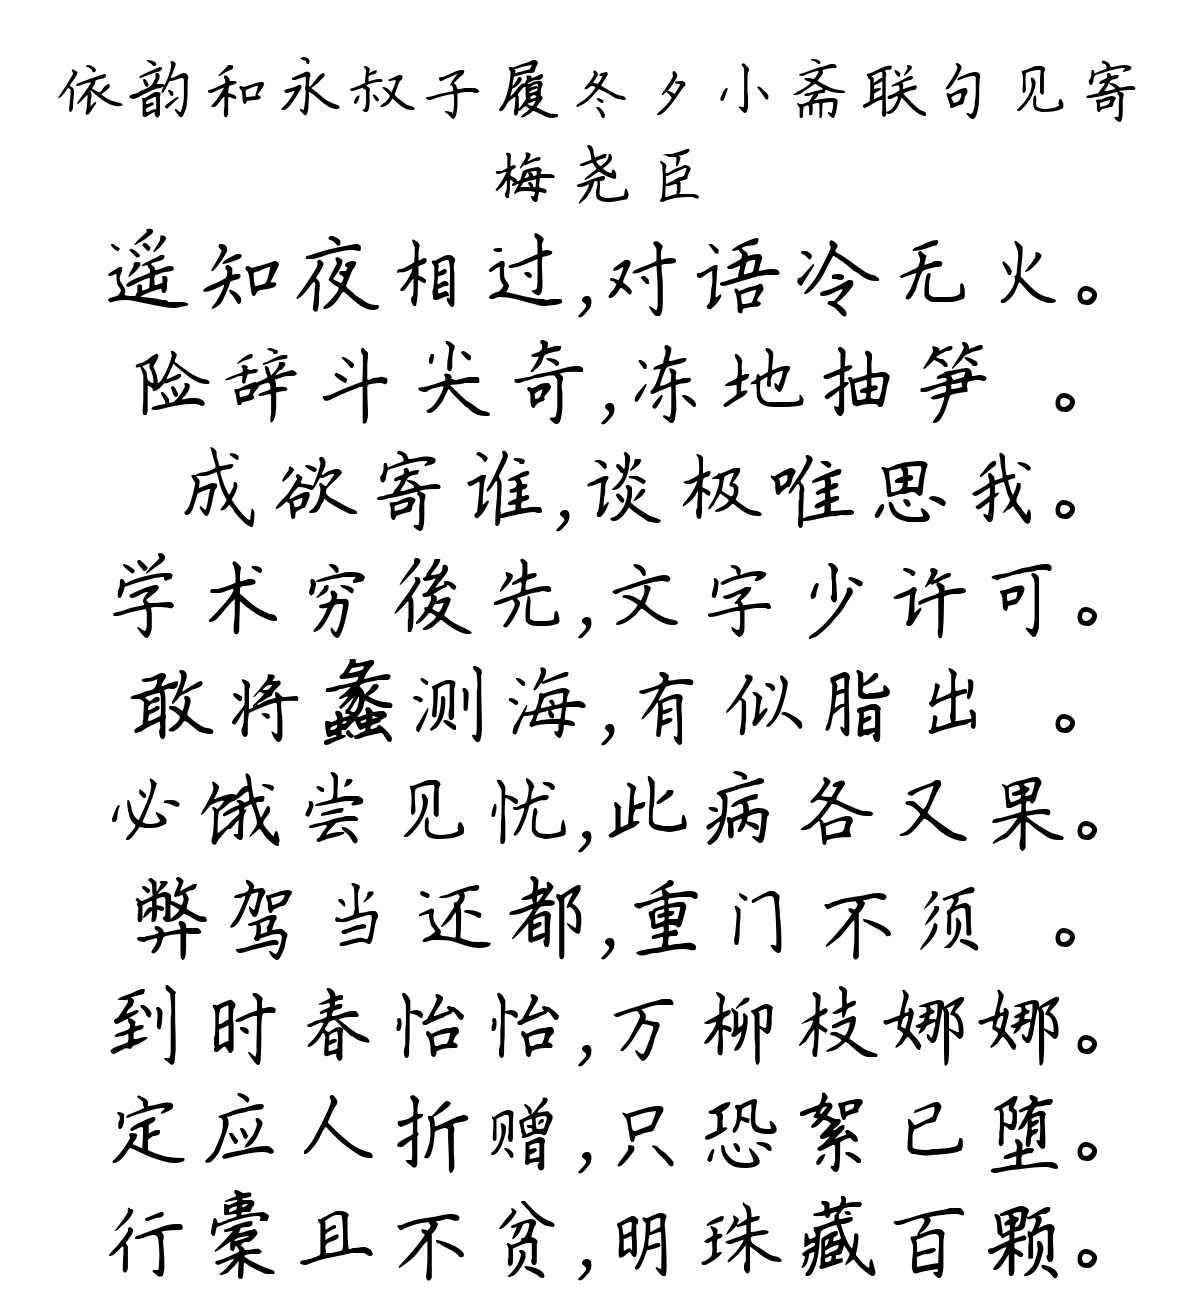 依韵和永叔子履冬夕小斋联句见寄
梅尧臣
遥知夜相过,对语冷无火。
险辞斗尖奇,冻地抽笋 。
成欲寄谁,谈极唯思我。
学术穷後先,文字少许可。
敢将蠡测海,有似脂出 。
必饿尝见忧,此病各又果。
弊驾当还都,重门不须 。
到时春怡怡,万柳枝娜娜。
定应人折赠,只恐絮已堕。
行橐且不贫,明珠藏百颗。